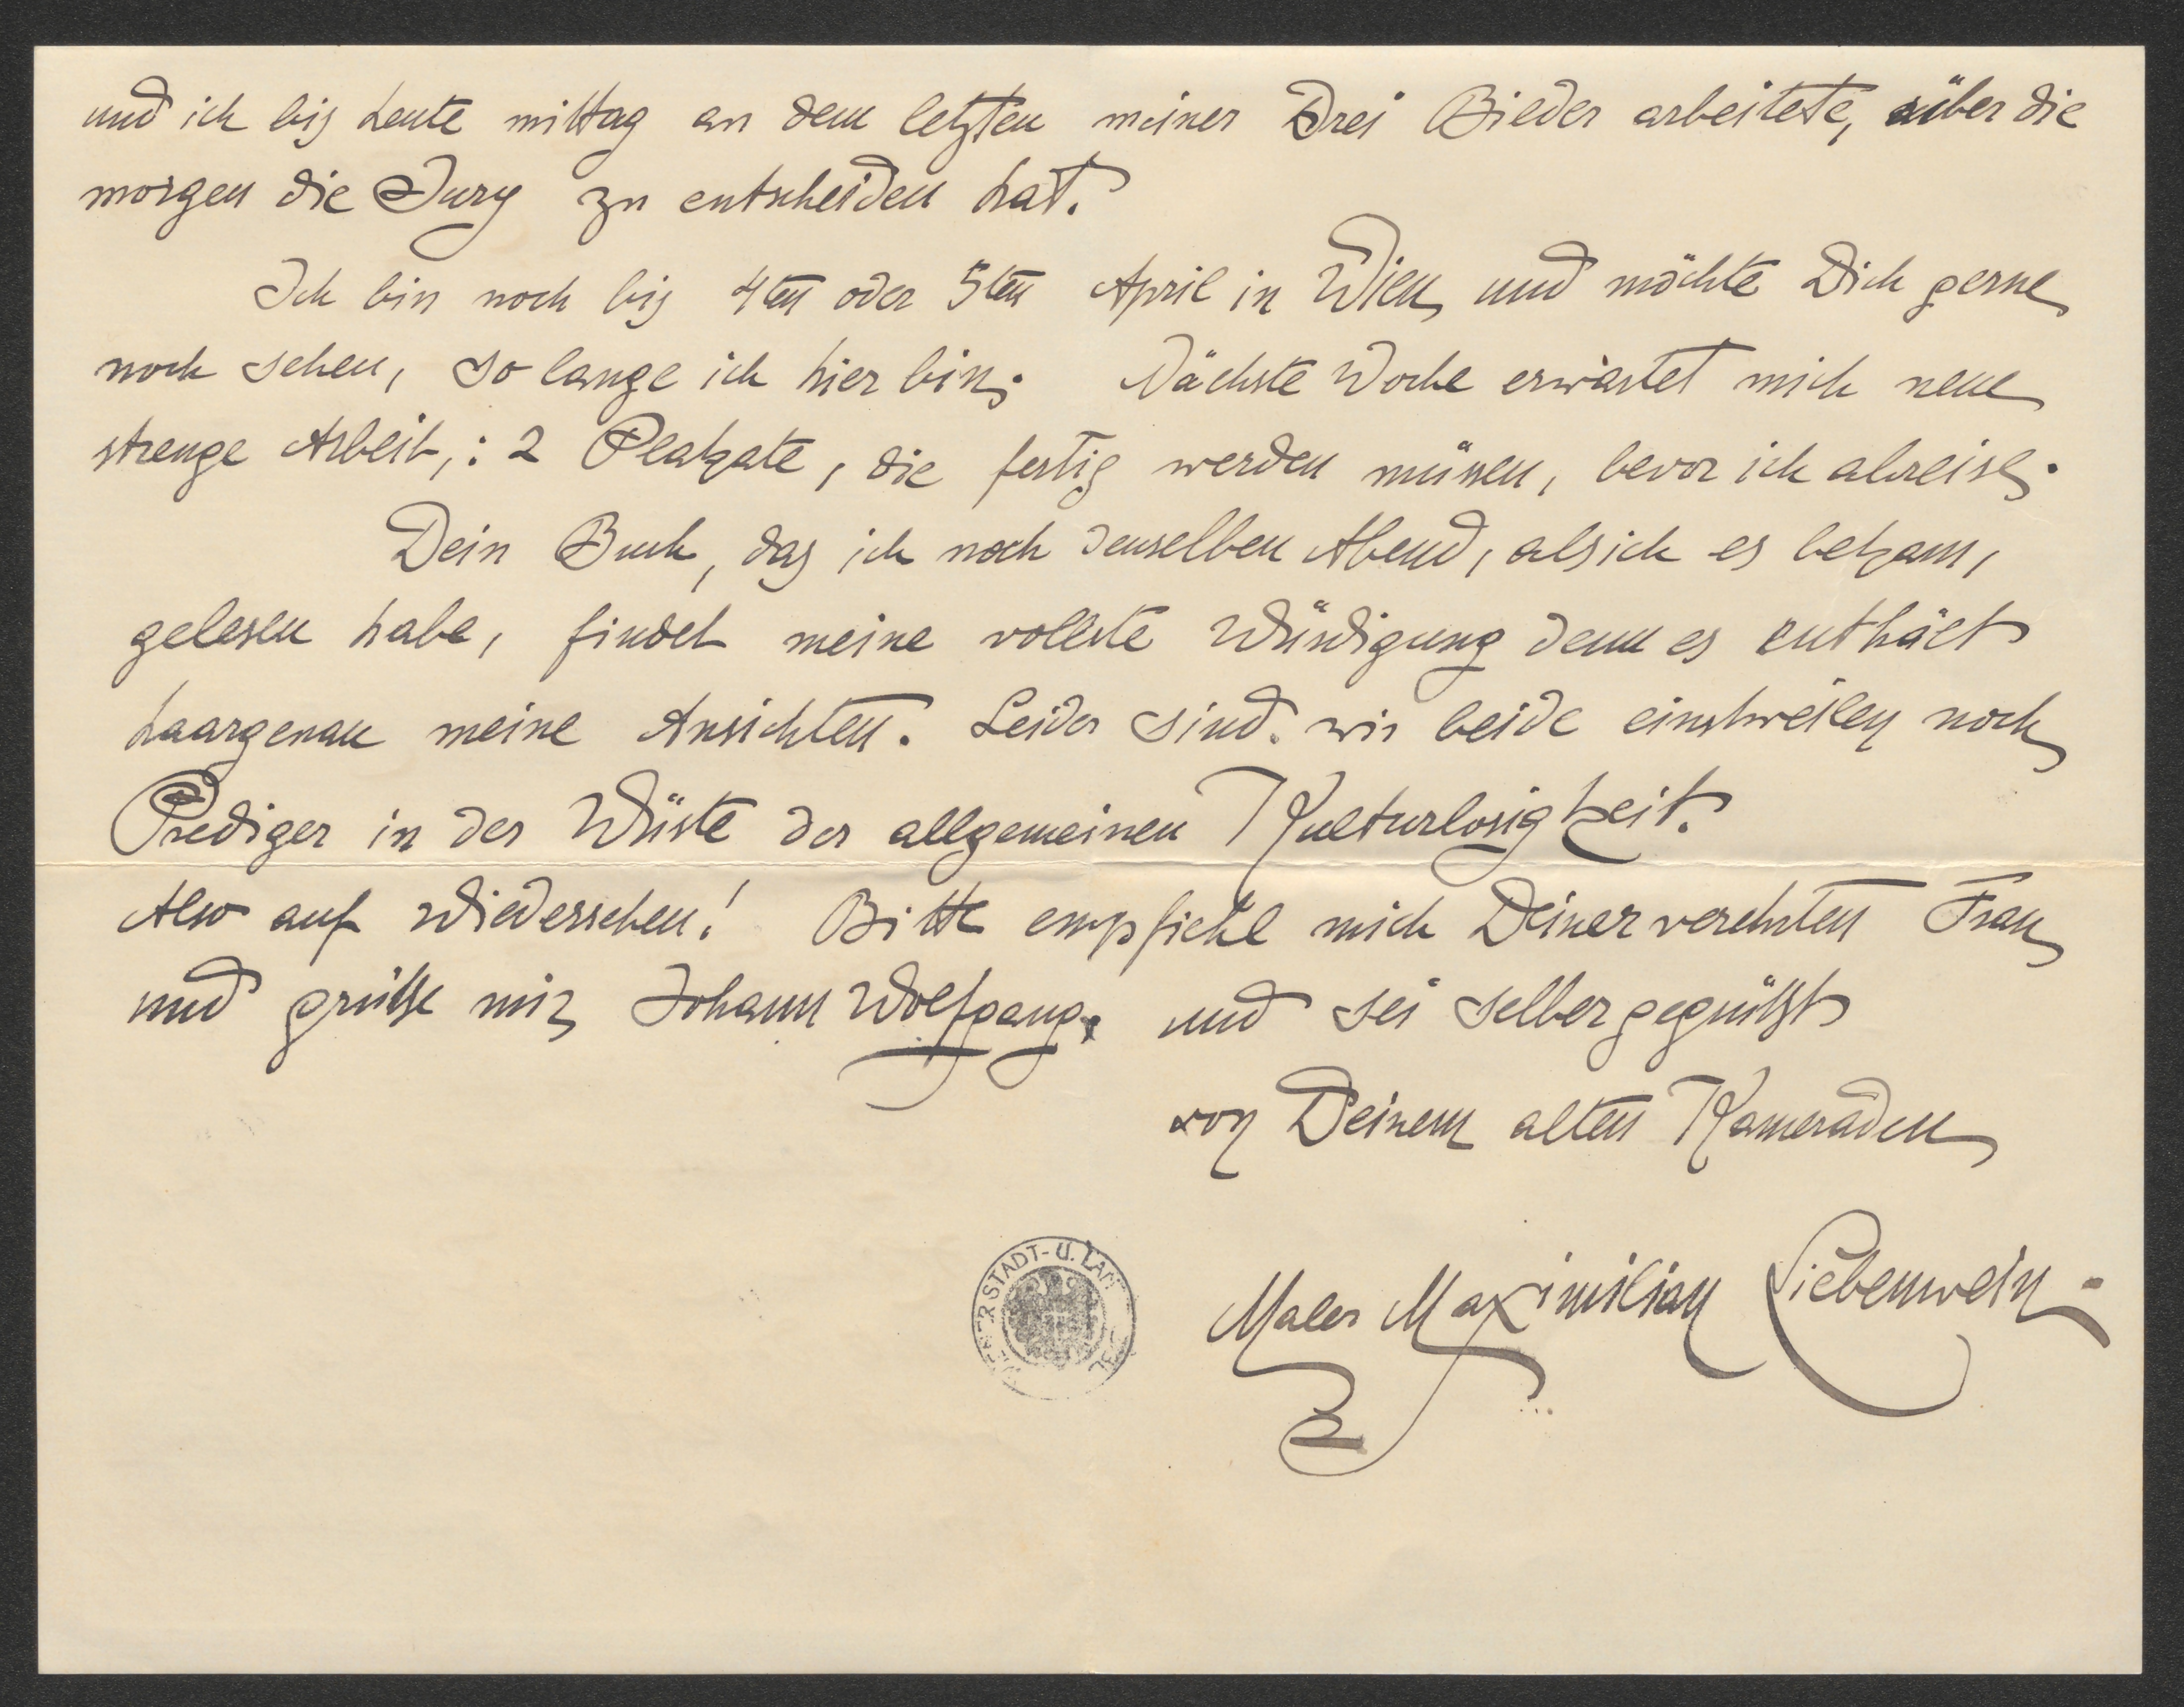 und ich bis heute mittag an dem letzten meiner drei Bilder arbeitete, über die
morgen die Jury zu entscheiden hat.
Ich bin noch bis 4ten oder 5ten April in Wien und möchte Dich gerne
noch sehen, so lange ich hier bin. Nächste Woche erwartet mich neue
strenge Arbeit,: 2 Plakate, die fertig werden müssen, bevor ich abreise.
Dein Buch, das ich noch denselben Abend, als ich es bekam,
gelesen habe, findet meine vollste Würdigung denn es enthält
haargenau meine Ansichten. Leider sind wir beide einstweilen noch
Prediger in der Wüste der allgemeinen Kulturlosigkeit.
Also auf Wiedersehen! Bitte empfiehl mich Deiner verehrten Frau
und grüße mir Johann Wolfgang. und sei selber gegrüßt
von Deinem alten Kameraden
Maler Maximilian Liebenwein.
STADT- U.